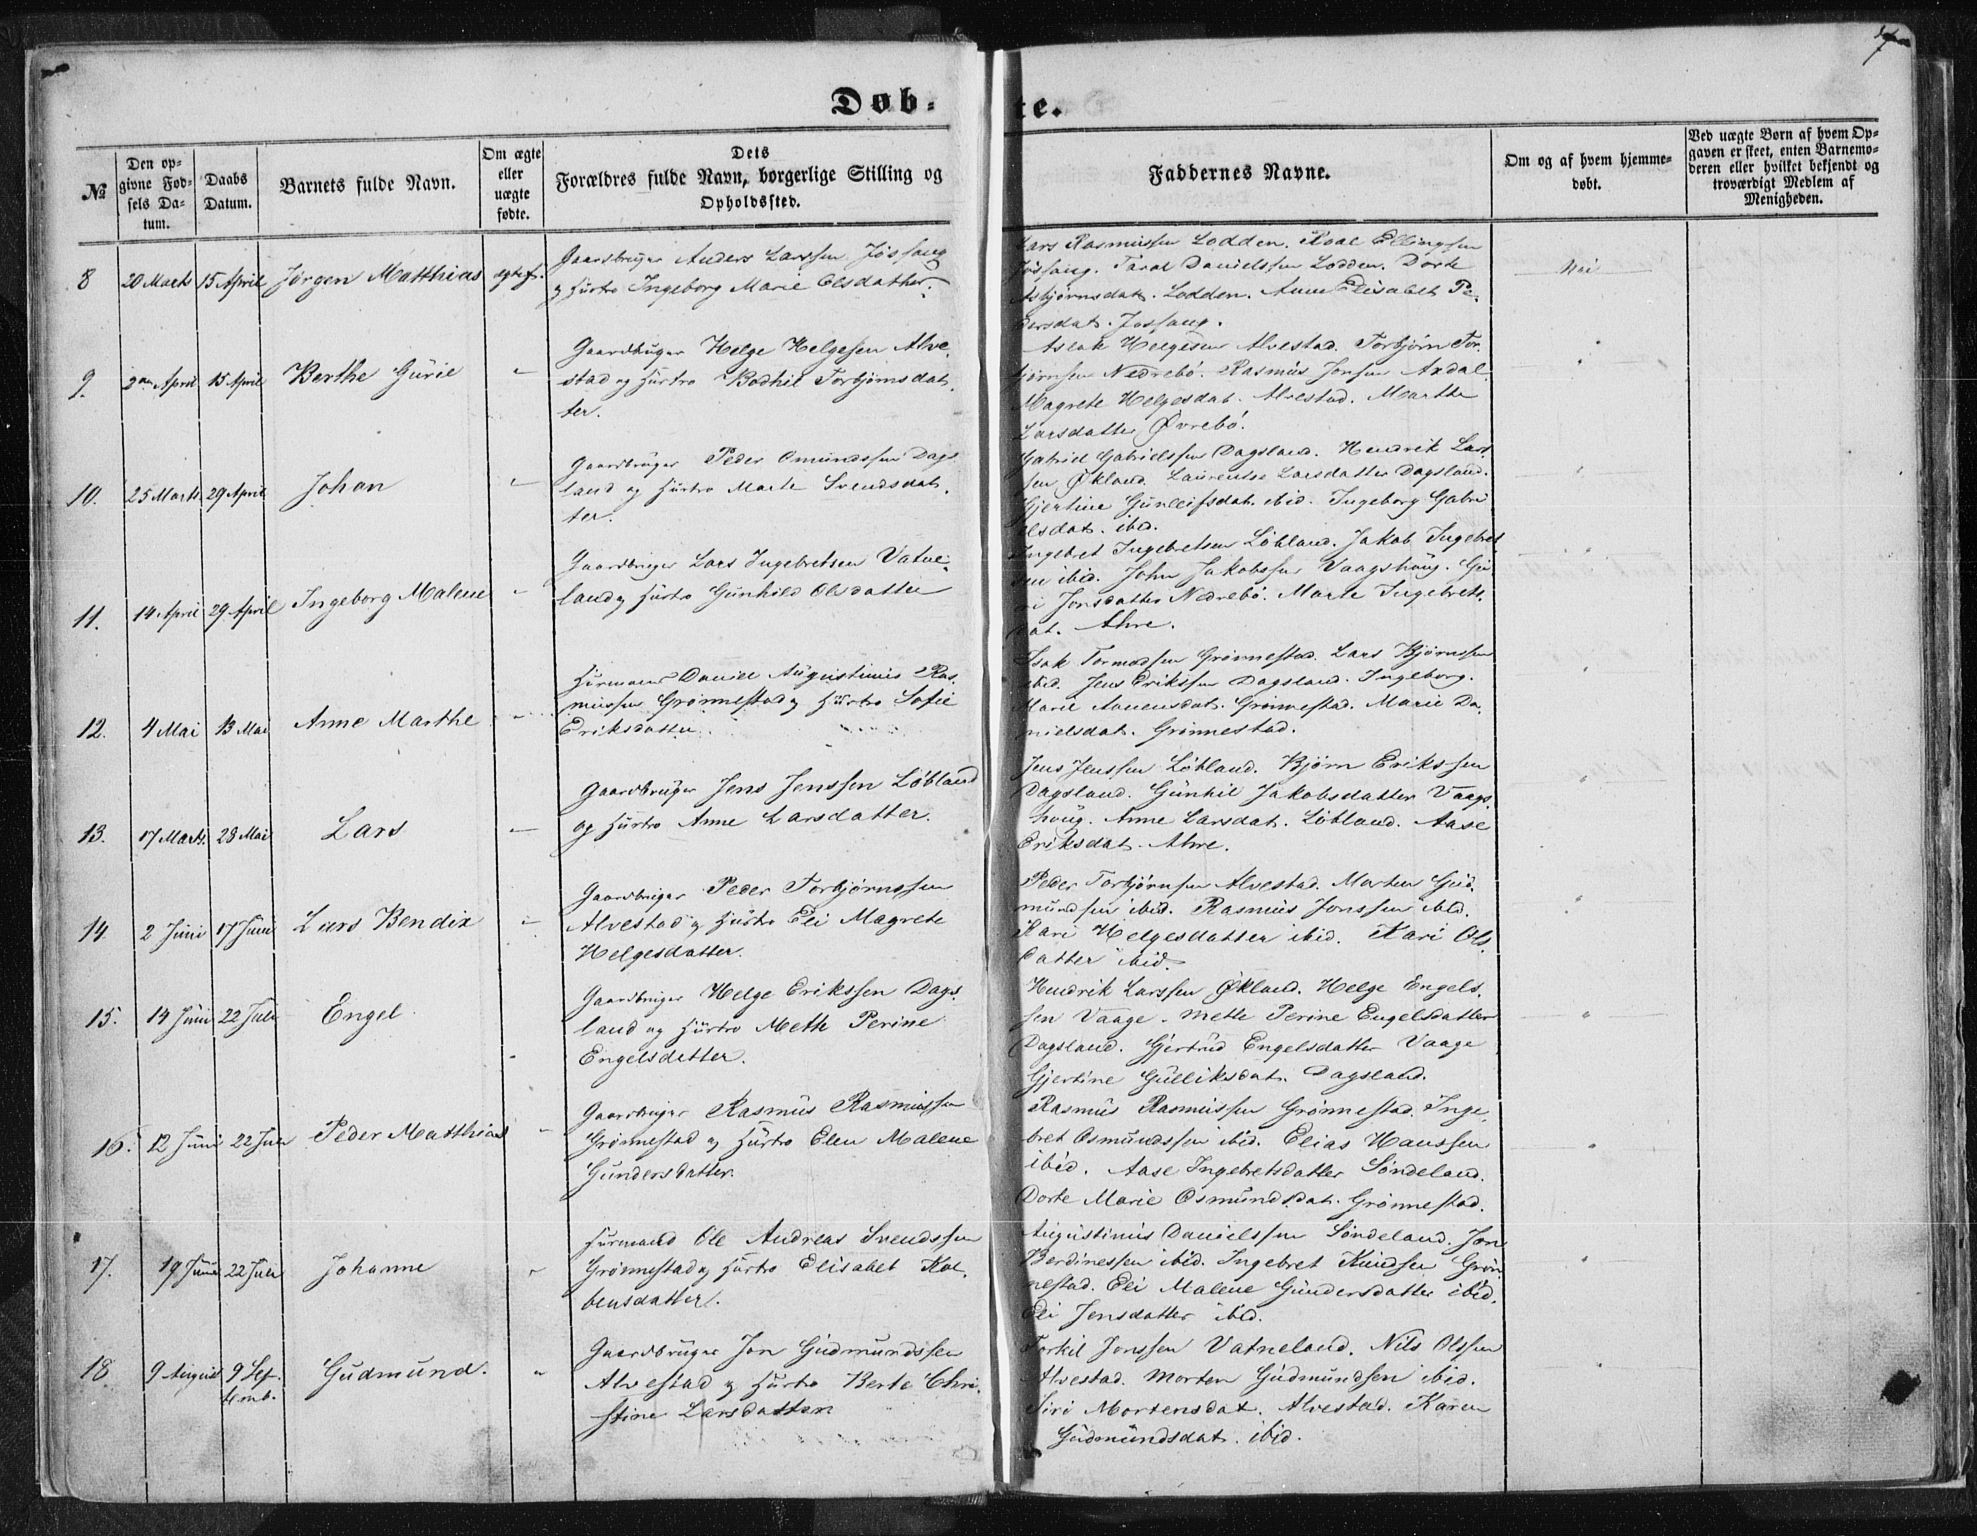 Døb-
te.
7
№
Den op-
givne Fød-
sels Da-
tum.
Daabs
Datum.
Barnets fulde Navn.
Om ægte
eller
uægte
fødte.
Dets
Forældres fulde Navn, borgerlige Stilling og
Opholdssted.
Faddernes Navne.
Om og af hvem hjemme-
døbt.
Ved uægte Børn af hvem Op-
gaven er skeet, enten Barnemo-
deren eller hvilket bekjendt og
troværdigt Medlem af
Menigheden.
8
20 Marts
15 April
Jørgen Matthias
ægtef.
Gaardbruger Anders Larssen Jøssang
og Hustro Ingeborg Marie Olsdatter.
Lars Rasmussen Lodden. Roal Ellingsen
Jøssang. Taral Danielssen Lodden. Dorte
Asbjørnsdat. Lodden. Anne Elisabet Pe-
dersdat. Jøssang.
Nei
9.
2den April
15 April
Berthe Gurie
"
Gaardbruger Helge Helgesen Alve-
stad og Hustro Bodhil Torbjørnsdat-
ter.
Aslak Helgesen Alvestad. Torbjørn Tor-
bjørnsen Nedrebø. Rasmus Jonsen Axdal.
Magrete Helgesdat. Alvestad. Marthe
Larsdatter Øvrebø.
"
10.
25 Marts
29 April
Johan
"
Gaardbruger Peder Omundssen Dags-
land og Hustro Marte Svendsdat-
ter.
Gabriel Gabrielssen Dagsland. Hendrik Lars-
sen Økland. Laurentse Larsdatter Dagsland.
Gjertine Gunleifsdat. ibid. Ingeborg Gabri-
elsdat. ibid.
"
11.
14 April
29 April
Ingeborg Malene
"
Gaardbruger Lars Ingebretsen Vatne-
land og Hustro Gunhild Olsdatter
Ingebret Ingebretsen Løbland. Jakob Ingebret-
sen ibid. John Jakobssen Vaagshaug. Gu-
ri Jonsdatter Nedrebø. Marte Ingebrets-
dat. Ahre.
"
12.
4 Mai
13 Mai
Anne Marthe
"
Husmand Daniel Augustinus Ras-
mussen Grønnestad og Hustro Sofie
Eriksdatter.
Isak Tormodsen Grønnestad. Lars Bjørnssen
ibid. Jens Erikssen Dagsland. Ingeborg
Marie Aanensdat. Grønnestad. Marie Da-
nielsdat. Grønnestad.
"
13.
17 Marts
28 Mai
Lars
"
Gaardbruger Jens Jenssen Løbland
og Hustro Anne Larsdatter.
Jens Jenssen Løbland. Bjørn Erikssen
Dagsland. Gunhil Jakobsdatter Vaags-
haug. Anne Larsdat. Løbland. Aase
Eriksdat. Ahre.
"
14.
2 Juni
17 Juni
Lars Bendix
"
Gaardbruger Peder Torbjørnssen
Alvestad og Hustro Eli Magrete
Helgesdatter.
Peder Torbjørnsen Alvestad. Morten Gud-
mundsen ibid. Rasmus Jonssen ibid.
Kari Helgesdatter ibid. Kari Ols-
datter ibid.
"
15.
14 Juni
22 Juli
Engel
"
Gaardbruger Helge Erikssen Dags-
land og Hustro Mette Perine
Engelsdatter.
Hendrik Larssen Økland. Helge Engels-
sen Vaage. Mette Perine Engelsdatter
Dagsland. Gjertrud Engelsdatter Vaage
Gjertine Gulliksdat. Dagsland.
"
16.
12 Juni
22 Juli
Peder Matthias
"
Gaardbruger Rasmus Rasmussen
Grønnestad og Hustro Elen Malene
Gundersdatter.
Rasmus Rasmussen Grønnestad. Inge-
bret Osmundssen ibid. Elias Hanssen
ibid. Aase Ingebretsdatter Søndeland.
Dorte Marie Osmundsdat. Grønnestad.
"
17.
19 Juni
22 Juli
Johanne
"
Husmand Ole Andreas Svendssen
Grønnestad og Hustro Elisabet Kol-
bensdatter.
Augustinus Danielssen Søndeland. Jon
Berdinessen ibid. Ingebret Knudsen Grøn-
nestad. Eli Malene Gundersdatter ibid.
Eli Jensdatter ibid.
"
18.
9 August
9 Sep-
temb.
Gudmund.
"
Gaardbruger Jon Gudmundssen
Alvestad og Hustro Berte Chri-
stine Larsdatter
Torkil Jonssen Vatneland. Nils Olssen
Alvestad. Morten Gudmundsen ibid.
Siri Mortensdat. Alvestad. Karen
Gudmundsdat. ibid.
"